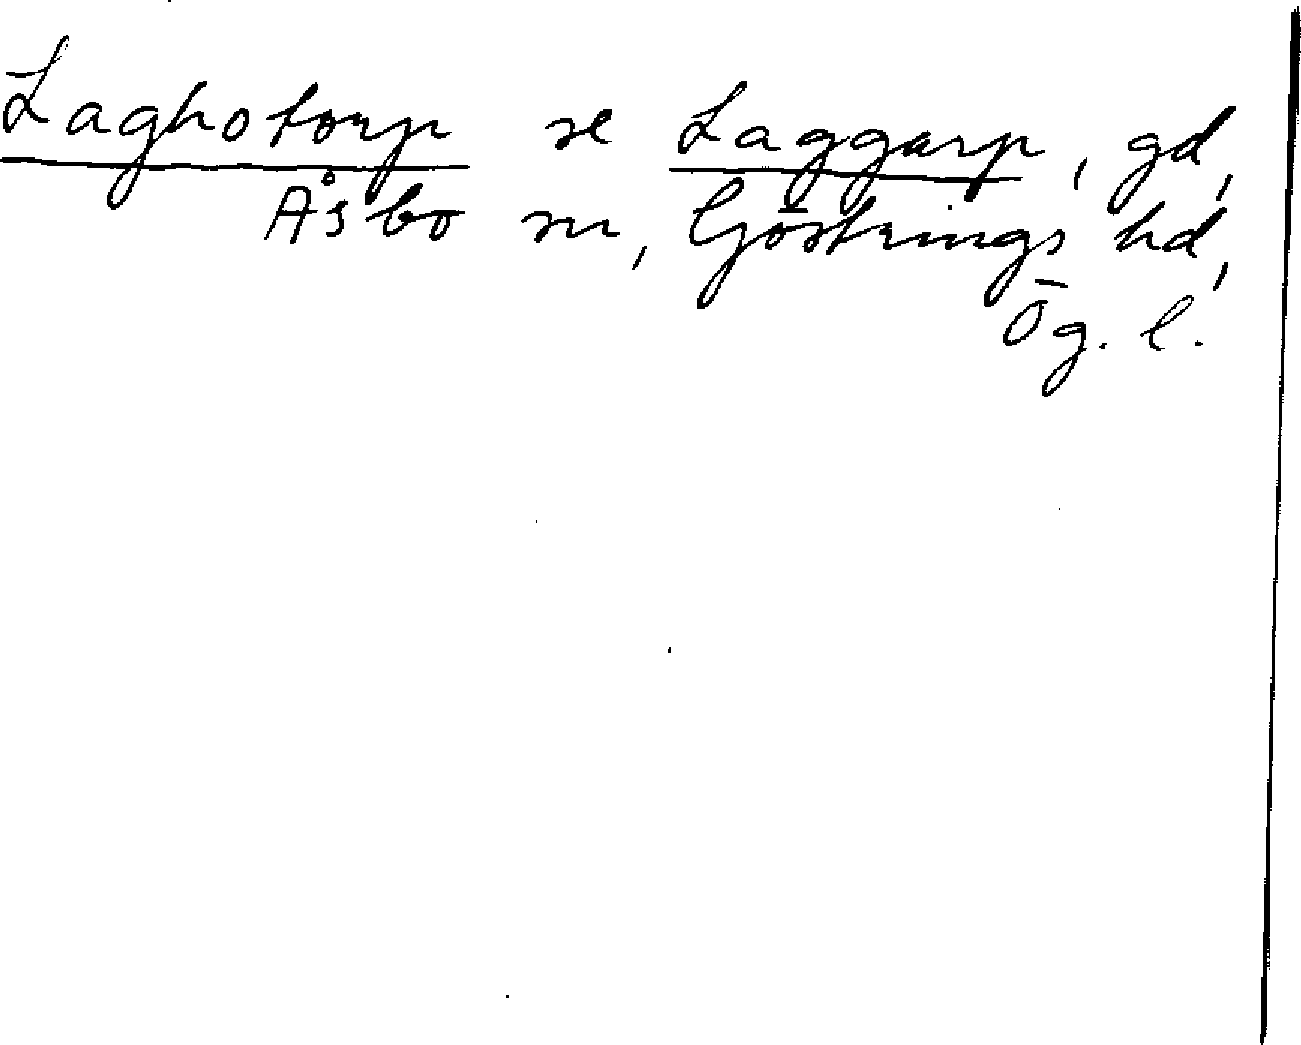 Laghotorp se Laggarp, gd,
Åsbo sn, Göstrings hd,
Ög. l.